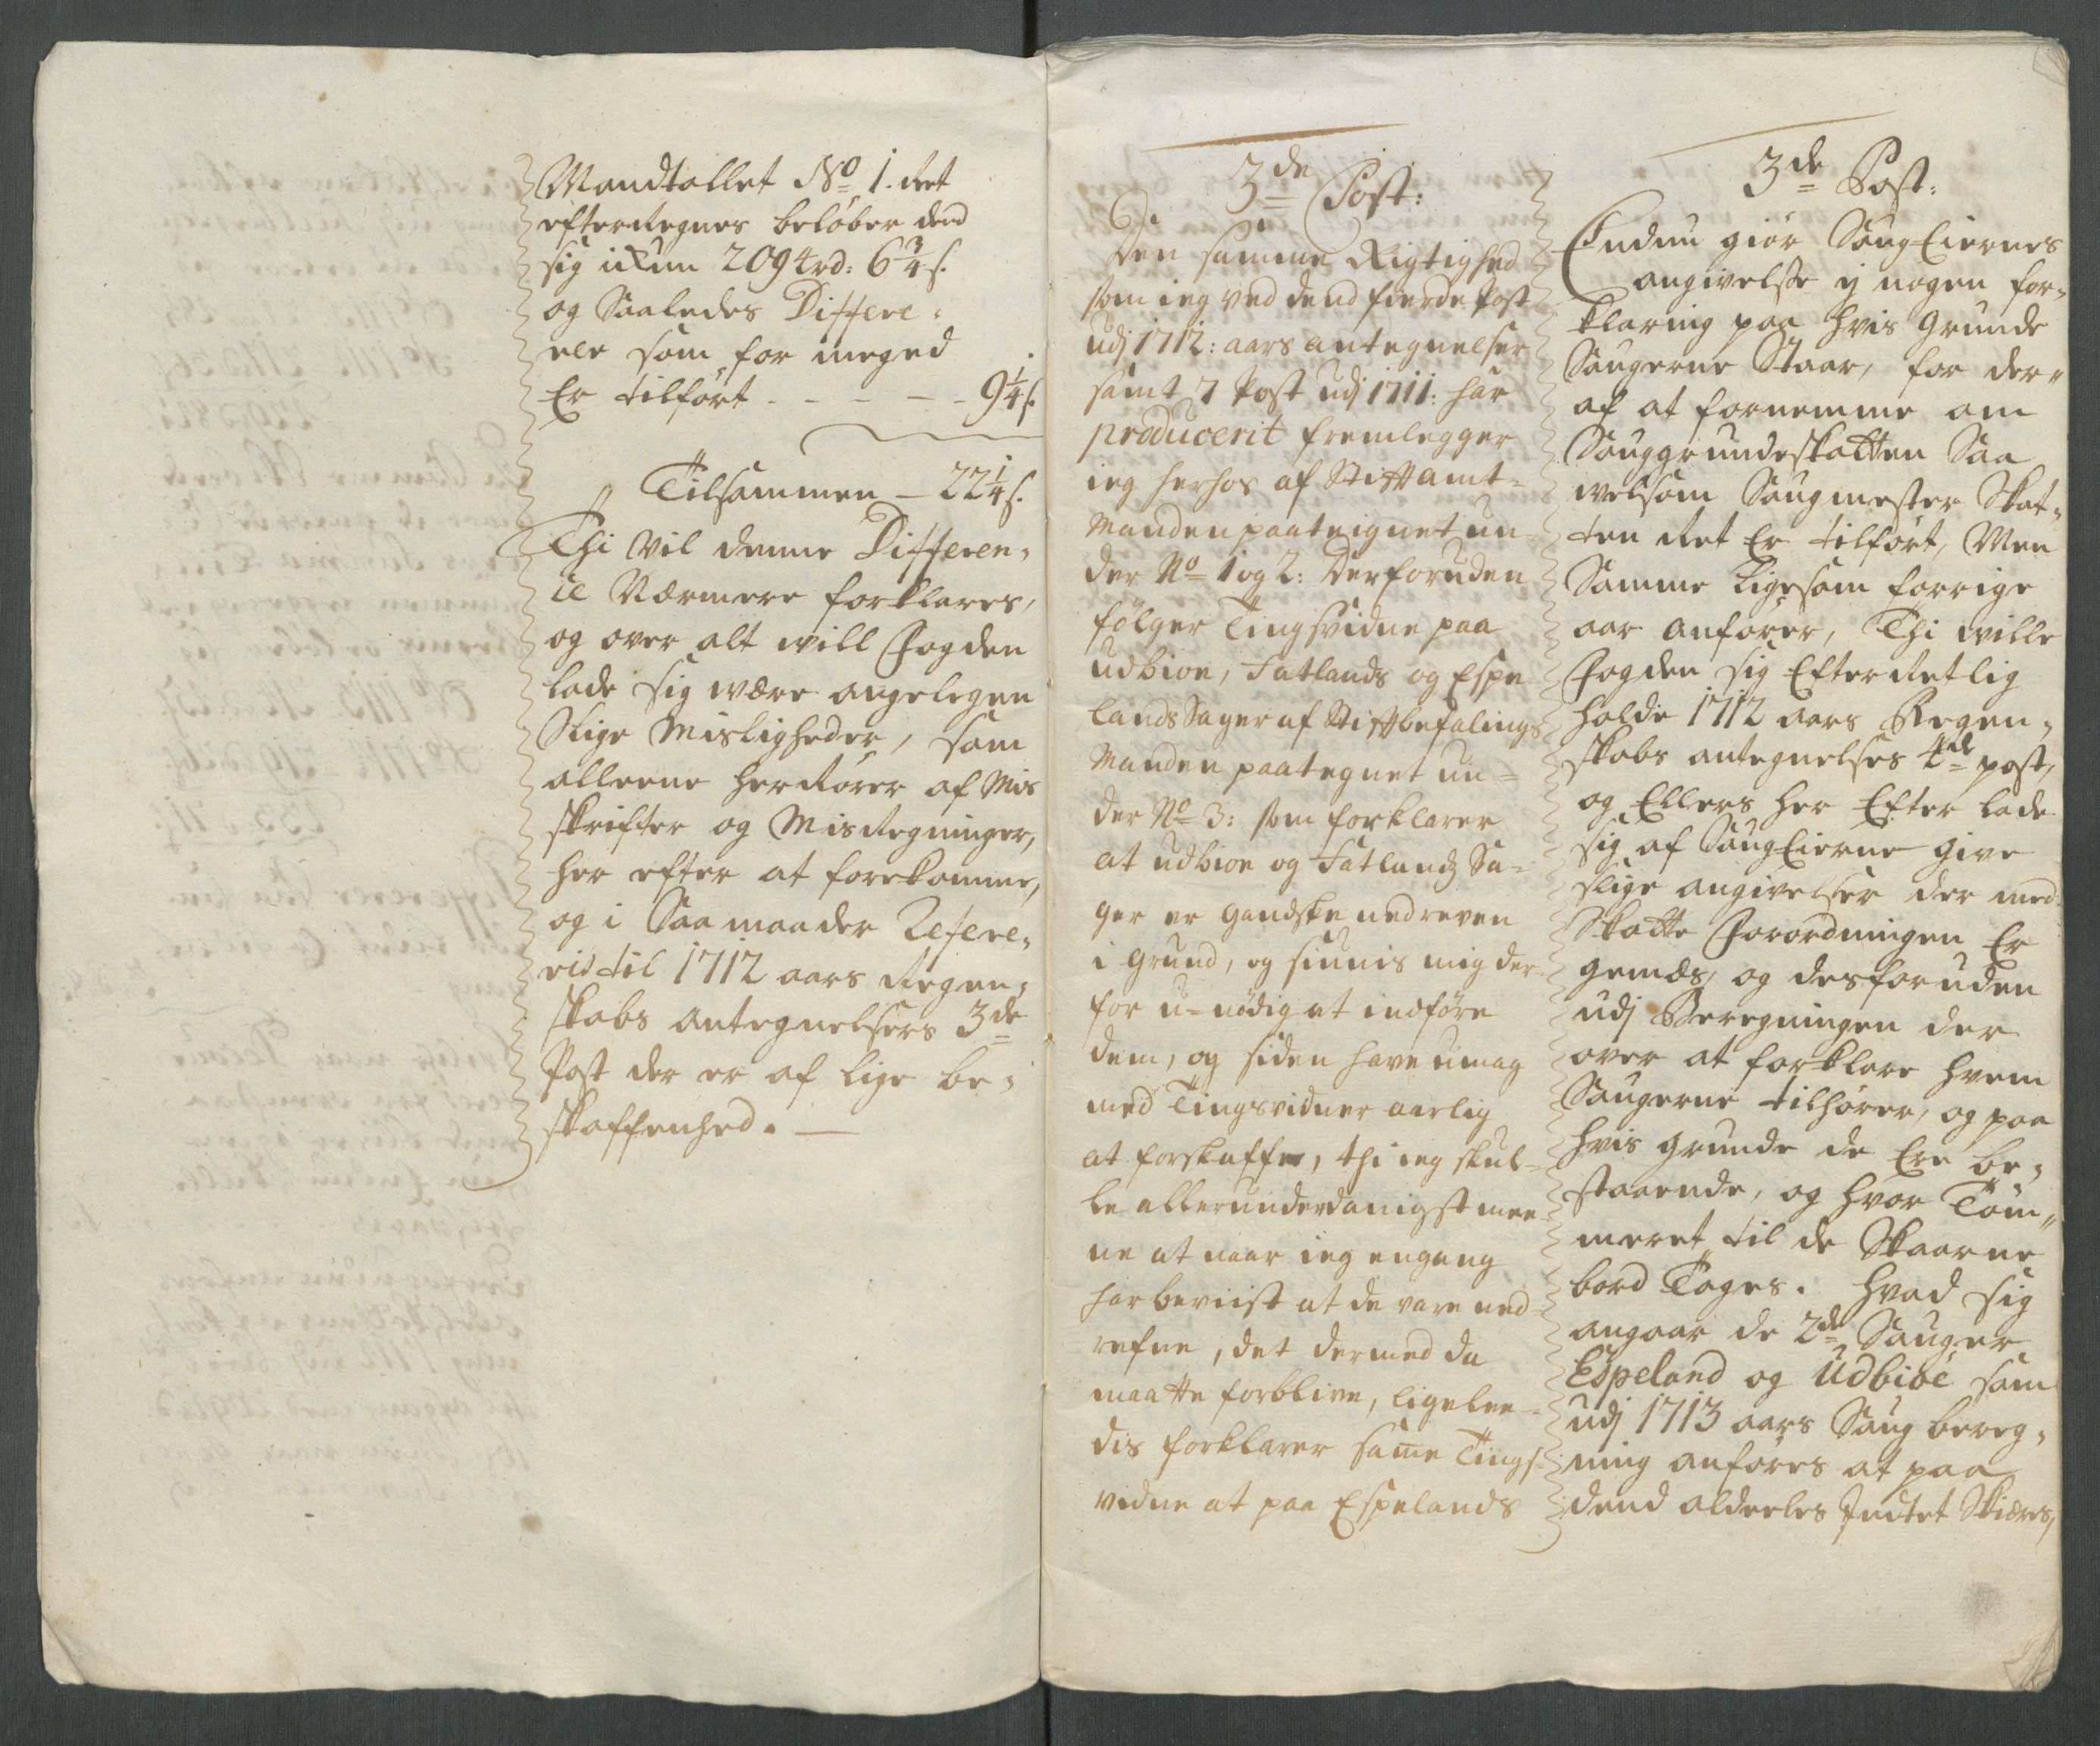 Mandtallet No 1. ret
efterregnes beløber dend
sig ickun 2094 rd: 6 3/4 s.
og Saaledes Differe=
ele som for meged
Er tilført - - - - - 9 1/4 s.
Tilsammen — 22 1/4 s.
Thi vil denne Differen=
ce Nærmere forklares,
og over alt will Fogden
lade sig wære angelegen
Slige Misligheder, som
alleene herrører af Mis
skrifter og Misregninger,
her efter at forekomme,
og i Saa maader Refere=
ris til 1712 aars regen=
skabs antegnelsers 3de
Post der er af lige be=
skaffenhed. —
3de Post:
Den samme Rigtighed
som ieg ved dend fierde Post
udj 1712: aars antegnelser
samt 7 Post udj 1711: har
producerit fremlegger
ieg herhos af Stiftamt=
manden paateignet un=
der No 1 og 2: Derforuden
følger Tingsvidne paa
udbioe, Fatlands og Espe
lands Sager af Stiftbefalings
Manden paategnet un=
der No 3: som forklarer
at udbioe og Fatlands Sa=
ger er gandske nedreven
i grund, og siunis mig der=
for u-nødig at indføre
dem, og siden have umag
med Tingsvidner aarlig
at forskaffe, thi ieg skul=
le allerunderdanigst mee
ne at naar ieg engang
har beviist at de vare ned=
refne, det dermed da
maatte forblive, ligelee=
dis forklarer same Tings=
vidne at paa Espelands
3de Post:
Endnu giør Saug Eiernes
angivelse ej nogen for=
klaring paa hvis Grunde
Saugerne Staar, for der=
af at fornemme om
Sauggrundeskatten Saa
welsom Saugmester Skat=
ten ret Er tilført, Men
Samme Ligesom forrige
aar anfører, Thi wille
Fogden sig Efterretlig
holde 1712 aars Regen=
skabs antegnelses 4de post,
og Ellers her Efter lade
sig af Saug Eierne give
slige angivelser der med
Skatte Forordningen Er
gemæs, og desforuden
udj Beregningen der
over at forklare hvem
Saugerne tilhører, og paa
hvis grunde de Ere be=
staaende, og hvor Töm=
meret til de Skaarne
bord Tages. Hvad sig
angaar de 2de Sauger
Espeland og Udbioe som
udj 1713 aars Saug bereg=
ning anføres at paa
dend aldeeles Indtet Skiæres,